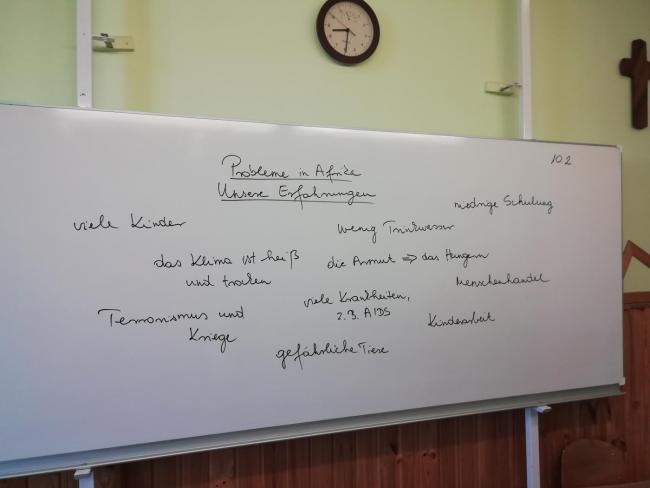 10.2
Probleme in Afrika
Unsere Erfahrungen
niedrige Schulung
viele Kinder
wenig Trinkwasser
das Klima ist heiß
und trocken
die Armut ⇒ das Hungern
Menschenhandel
viele Krankheiten,
z.B. AIDS
Terrorismus und
Kriege
Kinderarbeit
gefährliche Tiere